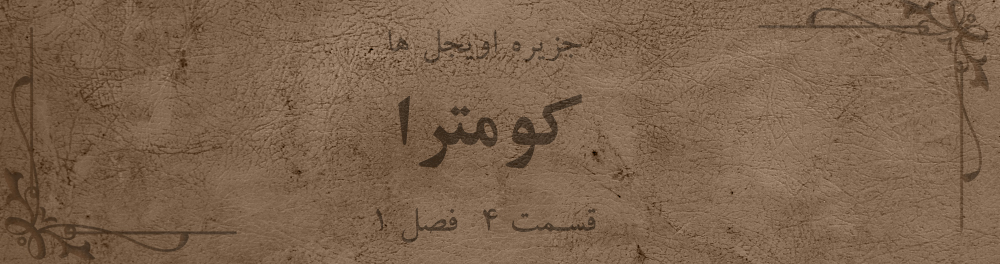 جزیره اویجل ها
کومترا
قسمت ۴ فصل ۱